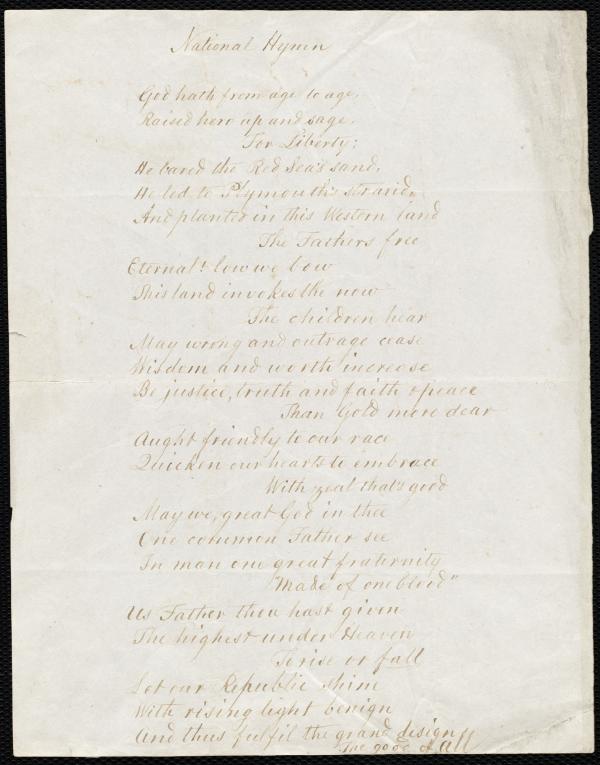 National Hymn
God hath from age to age,
Raised hero up and sage,
For Liberty;
He bared the Red Sea's sand,
He led to Plymouth's strand,
And planted in this Western land
The Fathers free
Eternal! low we bow
This land invokes the now
The children hear
May wrong and outrage cease
Wisdom and worth increase
Be justice, truth and faith & peace
Than Gold more dear
Aught friendly to our race
Quicken our hearts to embrace
With zeal that's good
May we, great God in thee
One common Father see
In man one great fraternity
"Made of one blood"
Us Father thou hast given
The highest under Heaven
To rise or fall
Let our Republic shine
With rising light benign
And thus fulfil the grand design
The good of All